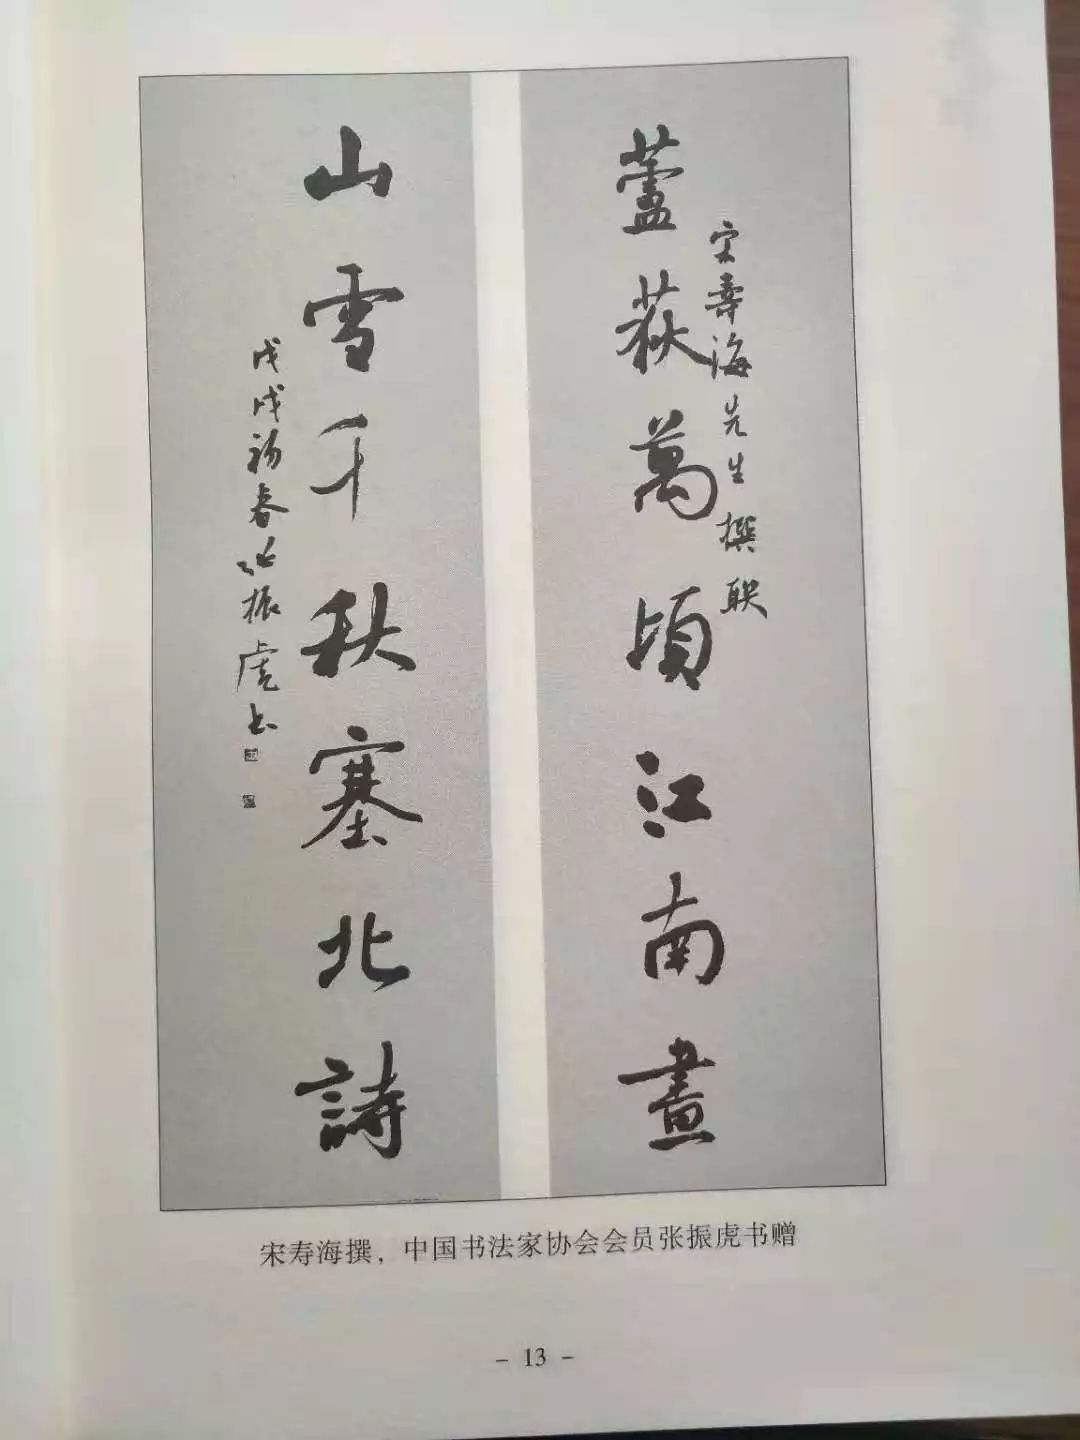 蘆荻萬頃江南畫
宋寿海先生撰联
山雪千秋塞北詩
戊戌初春张振虎书
宋寿海撰，中国书法家协会会员张振虎书赠
- 13 -